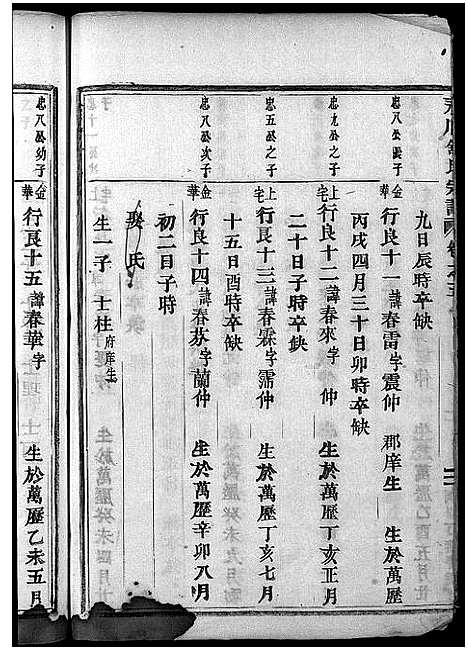 九日辰時卒缺
忠八公長子
行良十一諱春雷字震仲 郡庠生 生於萬歷
丙戌四月三十日卯時卒缺
忠九公之子
上宅行良十二諱春來字 仲 生於萬歷丁亥正月
二十日子時卒缺
忠五公之子
上宅行良十三諱春霖字霈仲 生於萬歷丁亥七月
十五日酉時卒缺
忠八公次子
金華行良十四諱春芬字蘭仲 生於萬歷辛卯八月
初二日子時
娶 氏
生一子 士柱府庠生
忠八公幼子
金華行良十五諱春華字 生於萬歷乙未五月